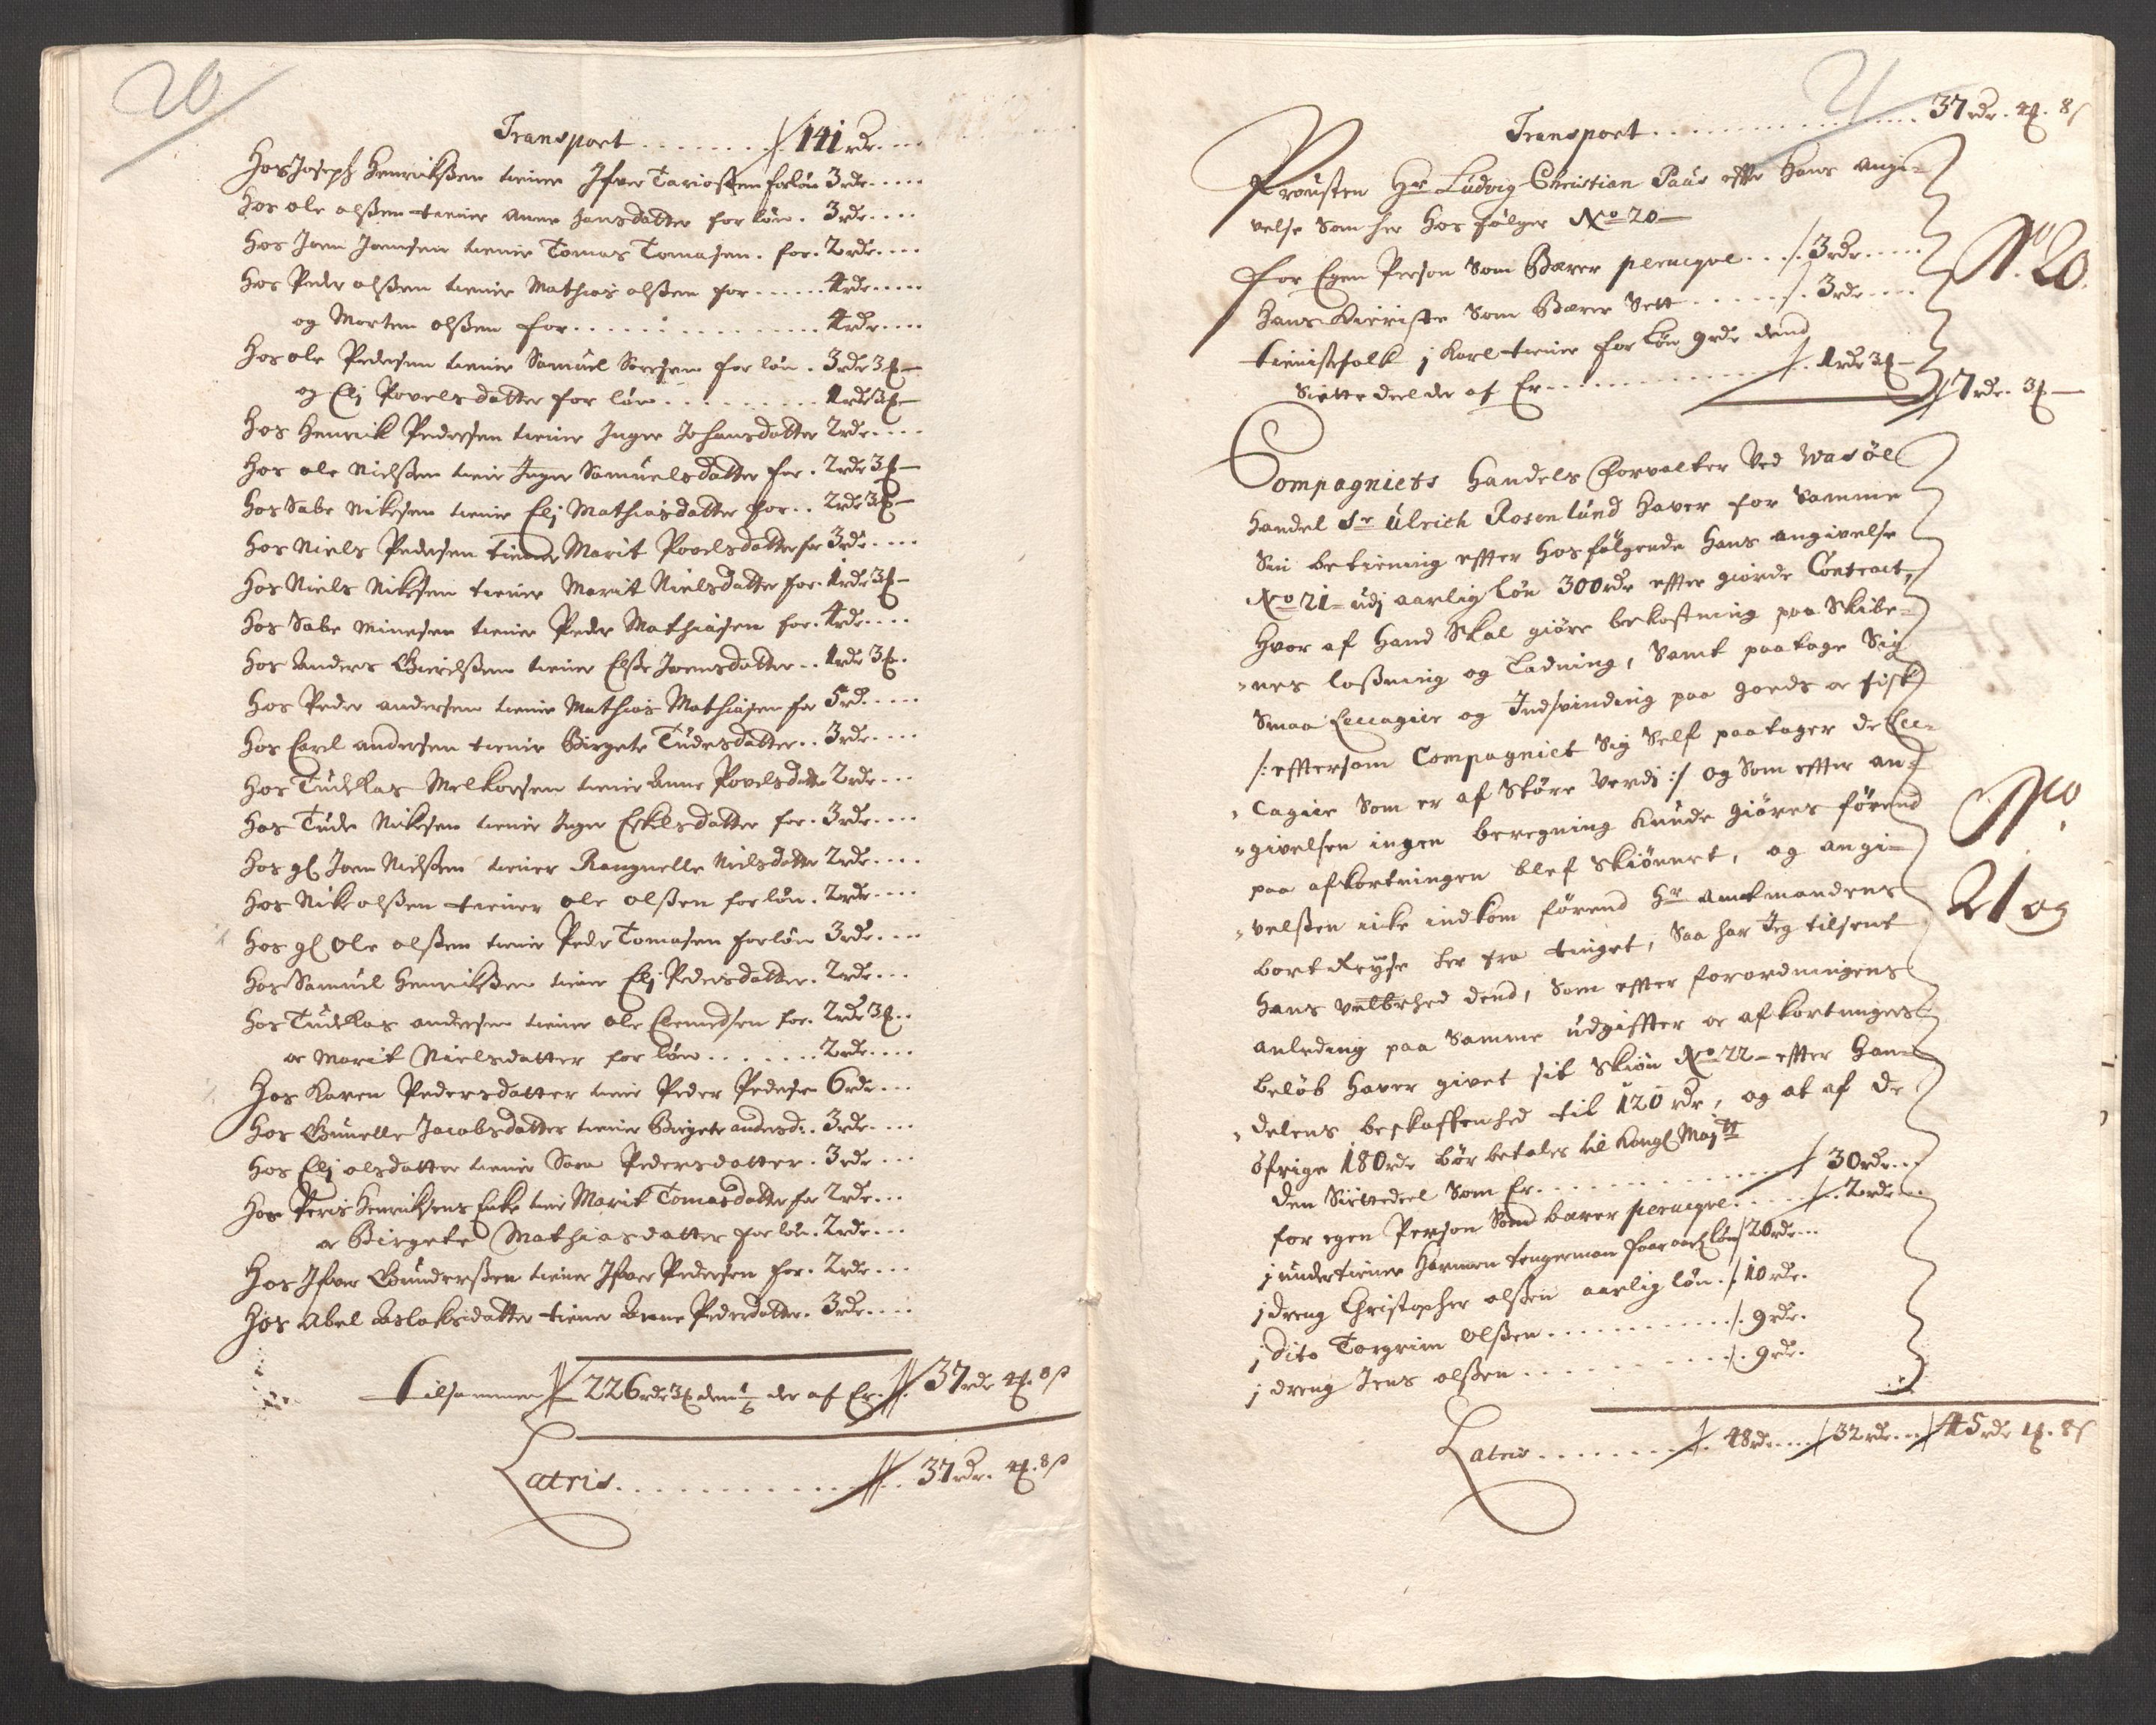 20
Transport . . . . . . . . 141 rdr. . . .
Hos Joseph Henrichßen tiener Ifver Tariossen for løn 3 rdr. . . . .
Hos ole olßen tiener Anne Hansdatter for løn . 3 rdr. . . .
Hos Joen Joensen tiener Tomas Tomasen . for . 2 rdr. . . .
Hos Peder olßen tiener Mathias olßen for . . . . . . 4 rdr. . . . .
og Morten olßen for . . . . . . . . . . . . . . 4 rdr. . . .
Hos ole Pedersen tiener Samuel Sørensen for løn . 3 rdr 3 ℔ —
og Elj Povelsdatter for løn . . . . . . . . . 1 rdr 3 ℔ —
Hos Henrik Pedersen tiener Inger Johansdatter 2 rdr. . . .
Hos ole Nielssen tiener Inger Samuelsdatter for . 2 rdr 3 ℔ —
Hos Sabe Nikesen tiener Elj Mathiasdatter for . . 2 rdr 3 ℔ —
Hos Niels Pedersen tiener Marit Povelsdatter for 3 rdr. . . .
Hos Niels Nikesen tiener Marit Nielsdatter for . 1 rdr 3 ℔ —
Hos Sabe Minesen tiener Peder Mathiasen for . 4 rdr. . . .
Hos Anders Gundersen tiener Else Joensdatter . . 1 rdr 3 ℔ .
Hos Peder andersen tiener Mathias Mathiasen for 5 rd. . . . .
Hos Carl andersen tiener Birgete Tudesdatter . . 3 rdr. . . .
Hos Tudellas Melkersen tiener Anne Povelsdatter 2 rdr. . . .
Hos Tude Nikesen tiener Inger Eskelsdatter for . 3 rdr. . . .
Hos gl Joen Nielssen tiener Rangnelle Nielsdatter 2 rdr. . . .
Hos Nike olßen tiener ole olßen for løn . 2 rdr. . . .
Hos gl Ole olßen tiener Peder Tomasen for løn 3 rdr. . . .
Hos Samuel Henrikßen tiener Elj Pedersdatter . 2 rdr. . . .
Hos Tudellas andersen tiener ole Clemedsen for . 2 rdr 3 ℔ . .
oc Marit Nielsdatter for løn . . . . . . . 2 rdr. . . .
Hos Karen Pedersdatter tiener Peder Pedersen 6 rdr. . . .
Hos Gunelle Jacobsdatter tiener Birgete andersd: . 3 rdr. . . .
Hos Elj olsdatter tiener Sara Pedersdatter . 3 rdr. . . .
Hos Peris Henriksens Enke tiener Marit Tomasdatter for 2 rdr. . .
oc Birgete Mathiasdatter for løn . 2 rdr. . .
Hos Ifver Gunderßen tiener Ifver Pedersen for . 2 rdr. . .
Hos Abel Aslaksdatter tiener Anne Pedersdatter . 3 rdr. . . .
Tilsammen 226 rdr 3 ℔ den 1/6 der af Er . 37 rdr 4 ℔. 8 ß
Latris . . . . . . . . . . . . 37 rdr. 4 ℔. 8 ß
21
Transport . . . . . . . . . . . . . . . 37 rdr. 4 ℔. 8 ß
Prousten Hr Ludvig Christian Paus effter hans angi-
velse som her hos følger No 20 —
No 20.
for Egen Person Som Bærer peruque . . . 3 rdr. . . . .
Hans Kieriste Som Bærer Sett . . . . . . 3 rdr. . . .
tienistefolk j Karl tiener for løn 9 rdr dend
Siette deel der af Er . . . . . . . . . . . 1 rdr 3 ℔ —
7 rdr. 3 ℔ —
Compagniets Handels Forvalter Ved Wadsøe
Handel Sr Ulrich Rosenlund haver for Samme
Sin betiening effter hosfølgende hans angivelse
No 21 — udj aarlig løn 300 rdr effter giorde Contract,
Hvor af hand Skal giøre bekostning paa Skibe-
nes lossning og Ladning, Samt paatage Sig
Smaa Leccagier og Indsvinding paa goeds oc fisk
/: efftersom Compagniet Sig Self paatager de Lec-
cagier Som er af Større Verdj :/ og Som effter an-
givelsen ingen beregning kunde giøres førend
No.
paa afkortningen blef Skiønnet, og angi-
21 og
velßen icke indkom førend Hr Amtmandens
bortReyse her fra tinget, Saa har Jeg tilsent
Hans Velbhed dend, Som effter forordningens
anleding paa Samme udgiffter oc afkortninger
beløb haver givet sit Skiøn No 22 — effter Han-
delens beskaffenhed til 120 rdr, og at af de
øfrige 180 rdr bør betales til Kongl Maytt
den Siettedeel Som Er . . . . . . . . . . . . 30 rdr. . .
for egen Person Som bærer peruque . . . . . . 2 rdr. . .
j undertiener Harmen tengerman faar aarl løn 20 rdr. . .
j dreng Christopher olßen aarlig løn . . 10 rdr.
j dito Torgrim Olßen . . . . . . . . . . . 9 rdr.
j dreng Jens olßen . . . . . . . . . . . . 9 rdr.
Latris . . . . . . . . . 48 rdr. . . . 32 rdr. . . 45 rdr 1 ℔. 8 ß